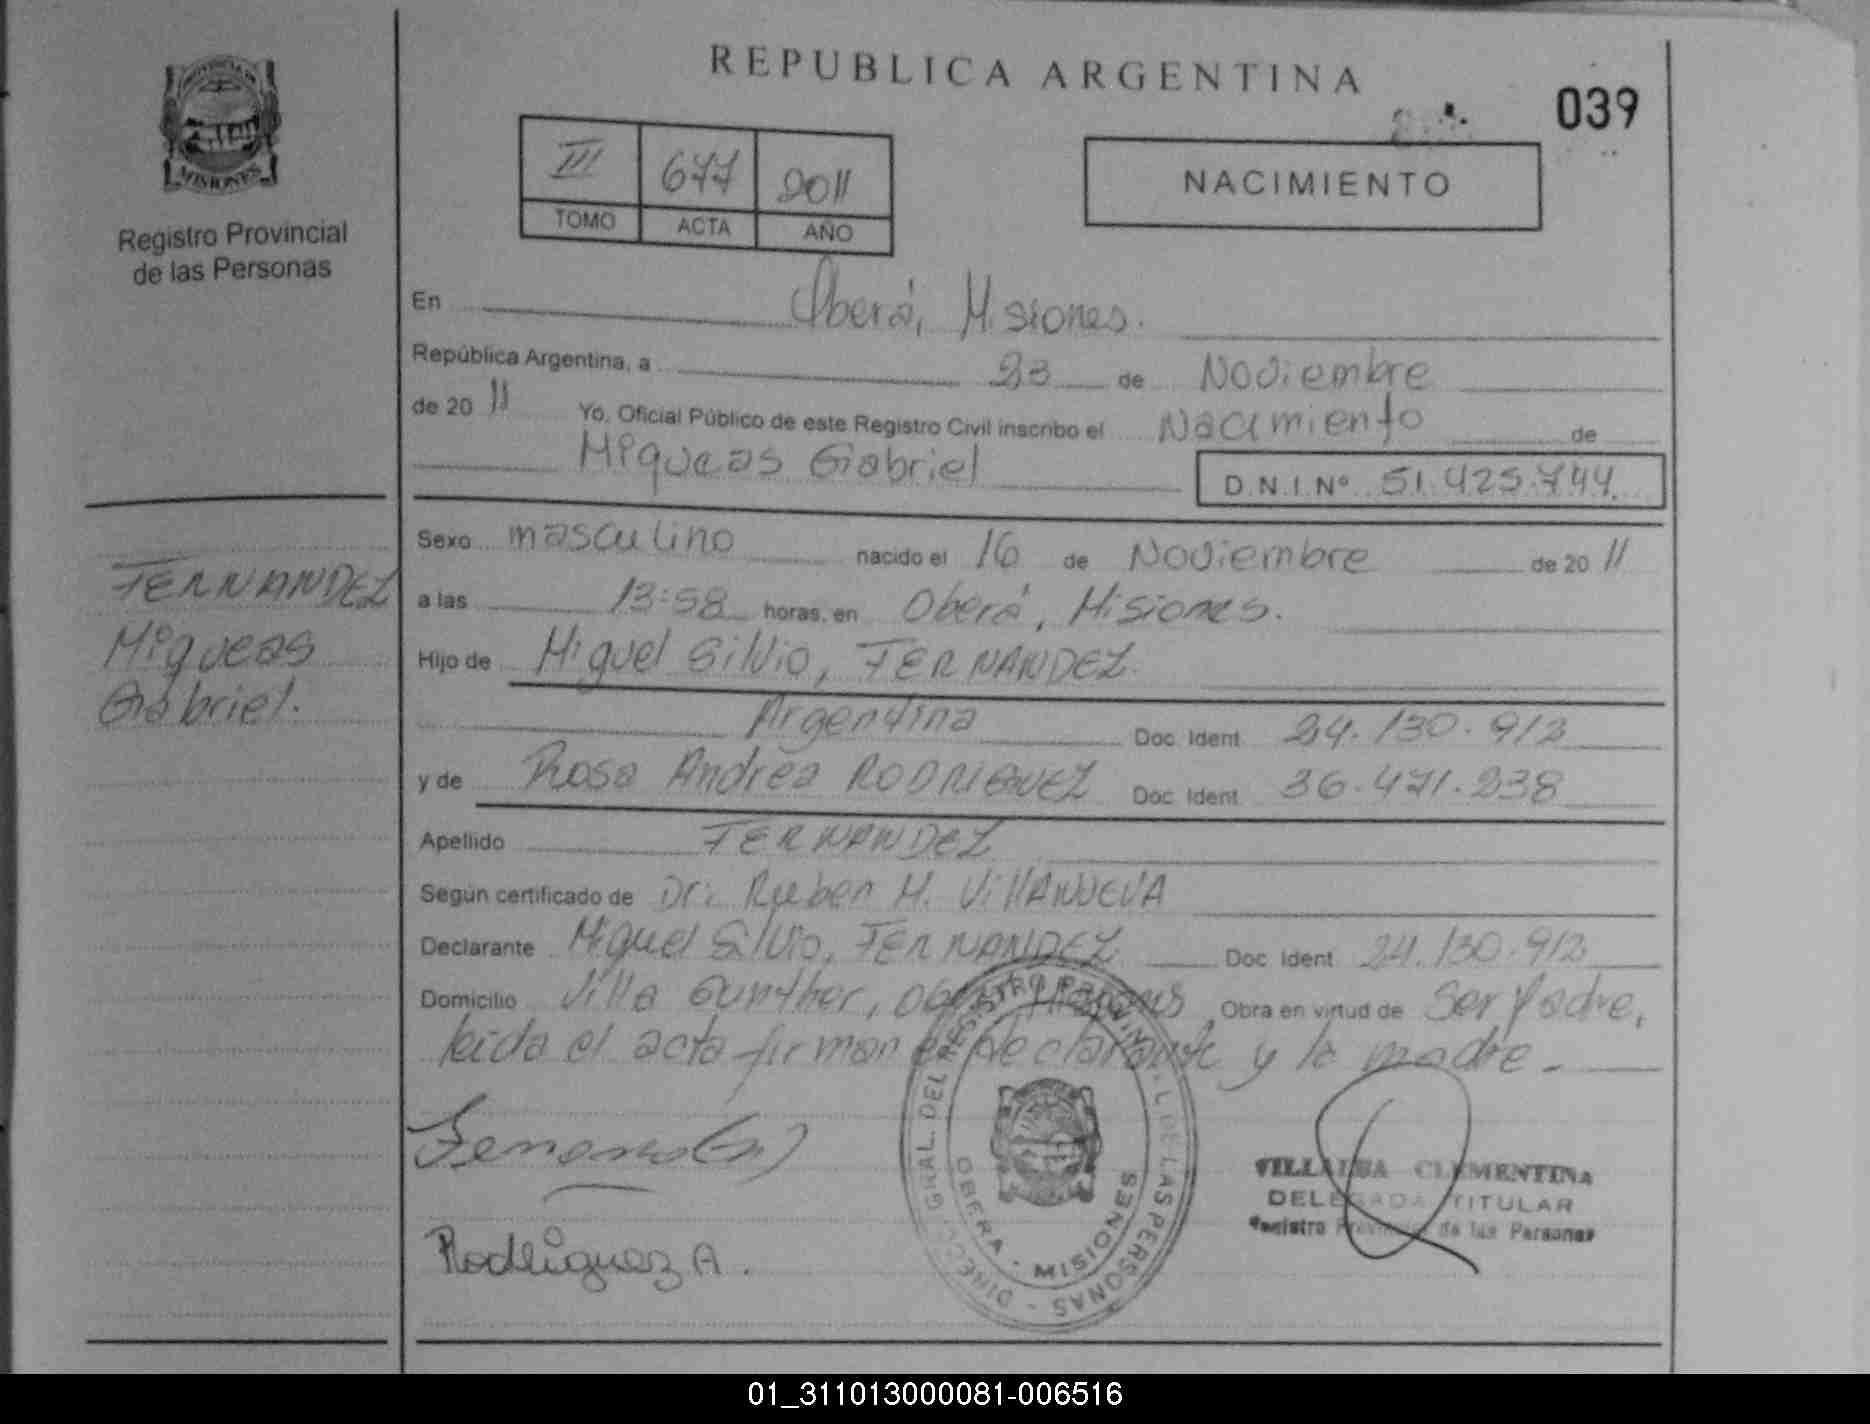 REPUBLICA ARGENTINA
039
PROVINCIA DE
MISIONES
Registro Provincial
de las Personas
III 677 2011
TOMO ACTA AÑO
NACIMIENTO
En Oberá, Misiones.
República Argentina, a 23 de Noviembre
de 20 11 Yo, Oficial Público de este Registro Civil inscribo el Nacimiento de
Miqueas Gabriel D.N.I.Nº 51.425.744
Sexo masculino nacido el 16 de Noviembre de 20 11
a las 13:58 horas, en Oberá, Misiones.
Hijo de Miguel Silvio, FERNANDEZ.
Argentina Doc. Ident 24.130.912
y de Rosa Andrea RODRIGUEZ Doc. Ident 36.471.238
Apellido FERNANDEZ
Según certificado de Dr. Ruben H. VillANUEVA
Declarante Miguel Silvio, FERNANDEZ Doc. Ident 24.130.912
Domicilio Villa Gunther, Obra en virtud de Ser Padre,
leida el acta firman el declarante y la madre.
FERNANDEZ
Miqueas
Gabriel.
Rodriguez A.
DIRECC. GRAL. DEL REGISTRO PROVINCIAL DE LAS PERSONAS -
OBERA - MISIONES
VILLALBA CLEMENTINA
DELEGADA TITULAR
Registro Provincial de las Personas
01_311013000081-006516